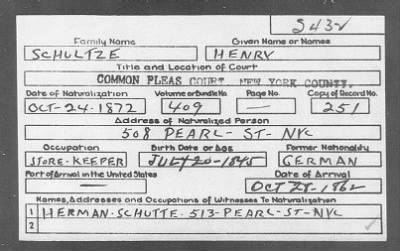 S432
Family Name Given Name or Names
SCHULTZE HENRY
Title and Location of Court
COMMON PLEAS COURT, NEW YORK COUNTY.
Date of Naturalization Volume or Bundle No. Page No. Copy of Record No.
OCT-24-1872 409 — 251
Address of Naturalized Person
508 PEARL-ST-NYC
Occupation Birth Date or Age Former Nationality
STORE-KEEPER JULY 20-1845 GERMAN
Port of Arrival in the United States Date of Arrival
— OCT 1862
Names, Addresses and Occupations of Witnesses To Naturalization
1 HERMAN-SCHUTTE-513-PEARL-ST-NYC
2